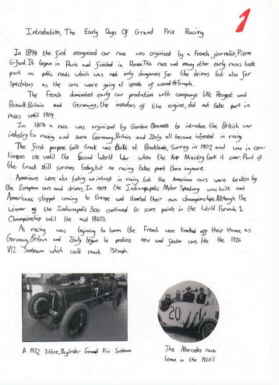 1
Introduction, The Early Days Of Grand Prix Racing
In 1894 the first recognised car race was organised by a French journalist, Pierre
Giffard. It began in Paris and finished in Rouen. This race and many other early races took
part on public roads which was not only dangerous for the drivers but also for
spectators as the cars were going at speeds of around
The French dominated early car production with companies like Peugeot and
Renault. Britain and Germany, the inventors of the engine, did not take part in
races until 1904
In a race was organised by Gordon Bennett to introduce the British car
industry to racing and soon Germany, Britain and Italy all became interested in racing
The first purpose built track was built at Brooklands, Surrey in 1907 and was in
use until the Second World War when the
the track still survives today but no racing takes part there anymore.
Americans were also taking an interest in racing but the American cars were beaten by
the European cars and drivers. In 1909 the Indianapolis Motor Speedway was built and
Americans stopped coming to Europe and started their own championships. Although the
winner of the Indianapolis 500 continued to score points in the World Formula 1
Championship until the mid
As racing was beginning to boom the French were knocked off their throne as
Germany, Britain and Italy began to produce new and faster cars like the
V12 Sunbeam which could reach
A 1922 Grand Prix Sunbeam
The Mercedes race
team in the
20